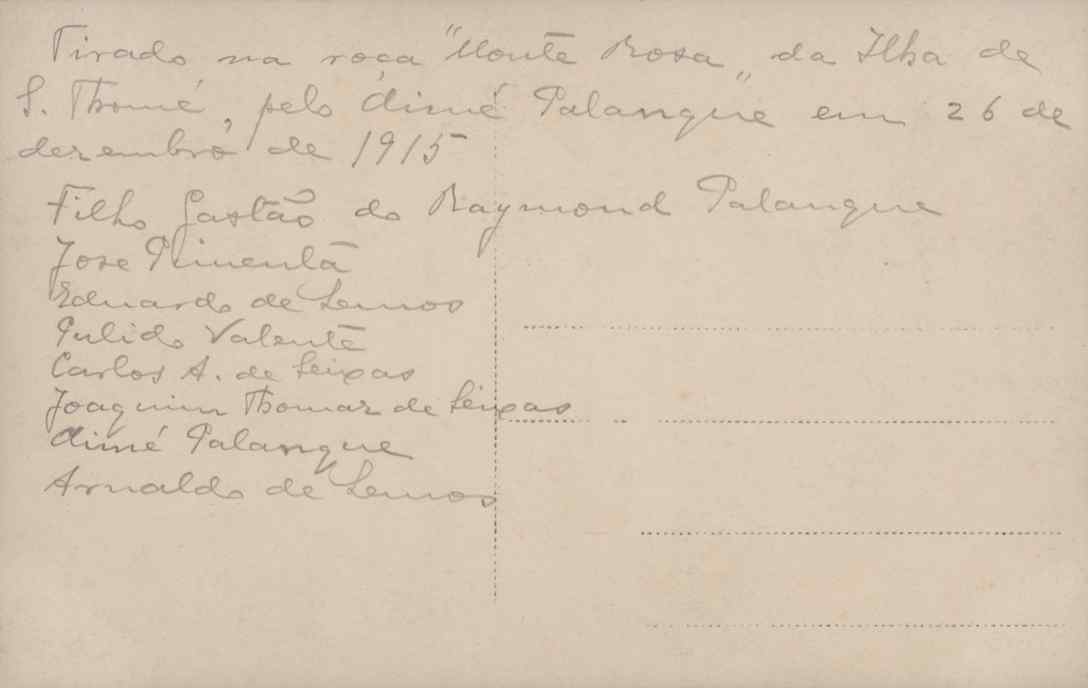 Tirado na roça "Monte Rosa„ da Ilha de
S. Thomé, pelo Aimé Palanque em 26 de
dezembro de 1915
Filho Gastão do Raymond Palanque
Jose Pimenta
Eduardo de Lemos
Pulido Valente
Carlos A. de Seixas
Joaquim Thomaz de Seixas
Aimé Palanque
Arnaldo de Lemos